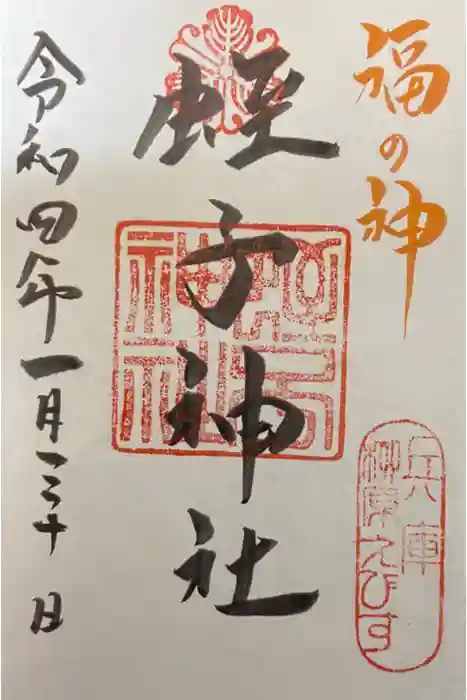 福の神
兵庫
柳原えびす
蛭子神社
令和四年一月二十日